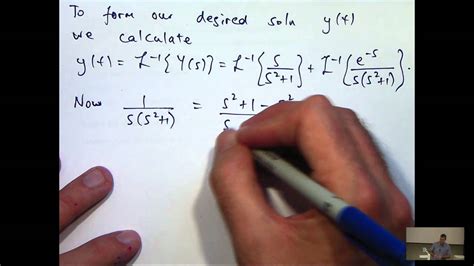 To form our desired soln y(t)
we calculate
y(t) = ℒ⁻¹{Y(s)} = ℒ⁻¹{s/(s²+1)} + ℒ⁻¹{e⁻ˢ/(s(s²+1))}.
Now 1/(s(s²+1)) = (s²+1 - s²)/(s